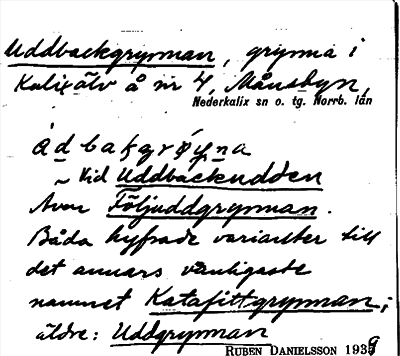 Uddbackgrynnan, grynna i
Kalixälv å nr 4, Månsbyn,
Nederkalix sn o. tg. Norrb. län
~ Vid Uddbackudden
Även Följuddgrynnan.
Båda hyfsade varianter till
det annars vanligaste
namnet Katafittgrynnan;
äldre: Uddgrynnan
RUBEN DANIELSSON 1939